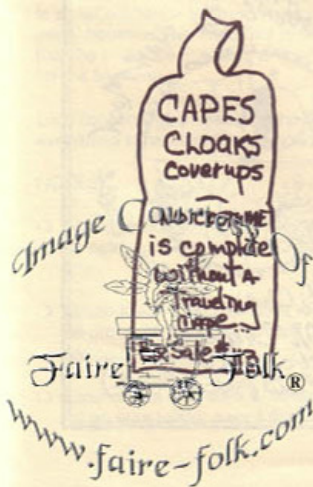 CAPES
CLOAKS
coverups
NO COSTUME
is complete
without A
Traveling
cape...
Image Courtesy Of
Faire Folk®
www.faire-folk.com